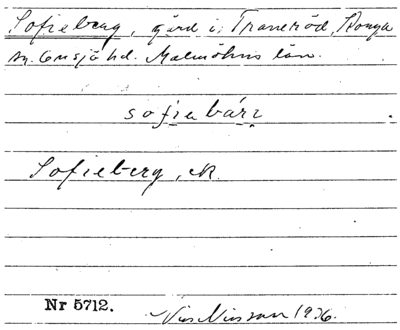 Sofieberg, gård i Traneröd, Konga
sn. Onsjö hd. Malmöhus län.
sofiebärj
Sofieberg, ek.
Nr 5712. Nils Nilsson 1936.